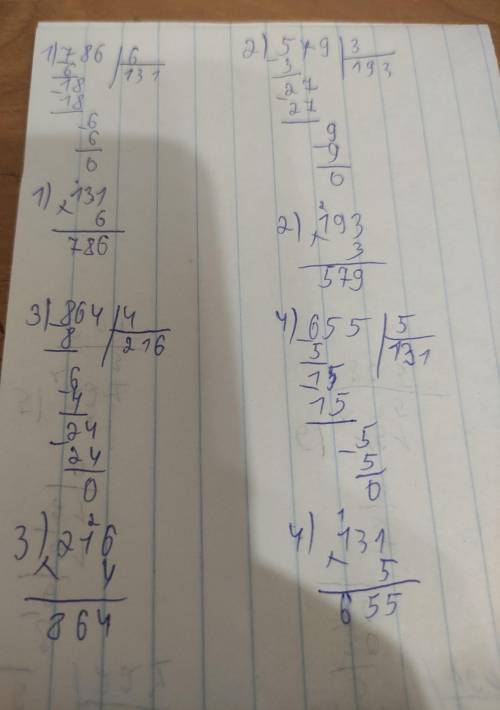 1) 786 | 6
- 6 | 131
18
- 18
6
- 6
0
1) 131
× 6
786
2) 579 | 3
- 3 | 193
27
- 27
9
- 9
0
2) 193
× 3
579
3) 864 | 4
- 8 | 216
6
- 4
24
- 24
0
3) 216
× 4
864
4) 655 | 5
- 5 | 131
15
- 15
5
- 5
0
4) 131
× 5
655